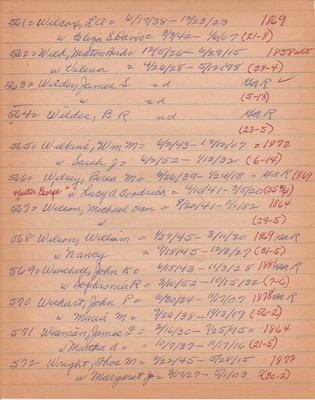 561 = Wilcox, L A = 6/17/38 - 12/23/23 1869
w Eliza S Davis = 3/9/42 - 1/6/07 (21-8)
562 = Wild, = 12/5/26 - 6/29/15
w = 4/26/28 - 5/12/98 (28-4)
563 = Wilder, James S nd H&R
w nd (5-13)
564 = Wilder, B R nd H&R
(23-5)
565 = Wilkins, Wm M = 6/2/43 - 1872
w Sarah J = 4/2/52 - 1/12/32 (6-14)
566 = Wiley, M = 4/26/39 - 2/24/18 = H&R 1869
w Lucy A Goodrich = 4/10/41 - 3/5/20
567 = Wilson, Michael Van = 8/20/41 - 9/1/82 1864
w (29-5)
568 Wilson, William = 1/27/45 - 3/11/30 1869 H&R
w Nancy = 9/18/45 - 12/18/27 (21-5)
569 = Winchell, John K = 4/13/43 - 12/31/28 H&R
w Sophronia R = 3/10/52 - 10/25/32 (7-6)
570 John P = 4/20/34 - 11/7/07 1878 H&R
w Maria M = 7/26/38 - 12/12/19 (56-2)
571 Wiseman, James F = 3/16/30 - 7/25/95 = 1864
w Martha A = 10/7/37 - 11/17/16 (21-5)
572 = Wright, Thos M = 7/22/45 - 5/28/15 1877
w Margaret J = 9/13/27 - 5/1/03 (30-2)